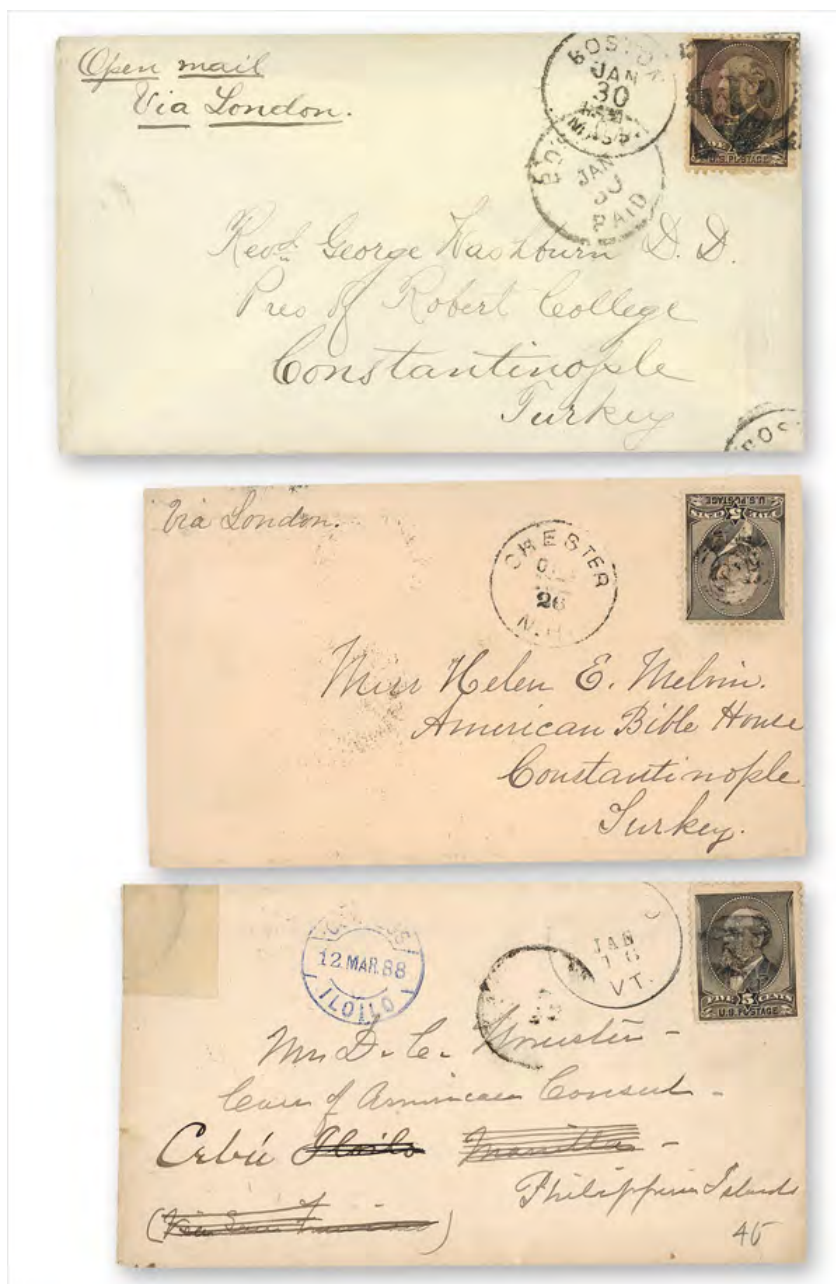 Open mail
Via London.
BOSTON
JAN
30
MASS.
JAN
PAID
U.S. POSTAGE
Revd. George Washburn D. D.
Pres of Robert College
Constantinople
Turkey
BOS
Via London.
CHESTER
26
N.H.
U.S. POSTAGE
Miss Helen E. Melvin.
American Bible House
Constantinople
Turkey.
CORREOS
12 MAR. 88
ILOILO
JAN
VT.
FIVE 5 CENTS
U.S. POSTAGE
Mr. D. C. Worcester
Care of American Consul
Cebú Iloilo Manilla
Philippine Islands
(Via San Francisco)
45